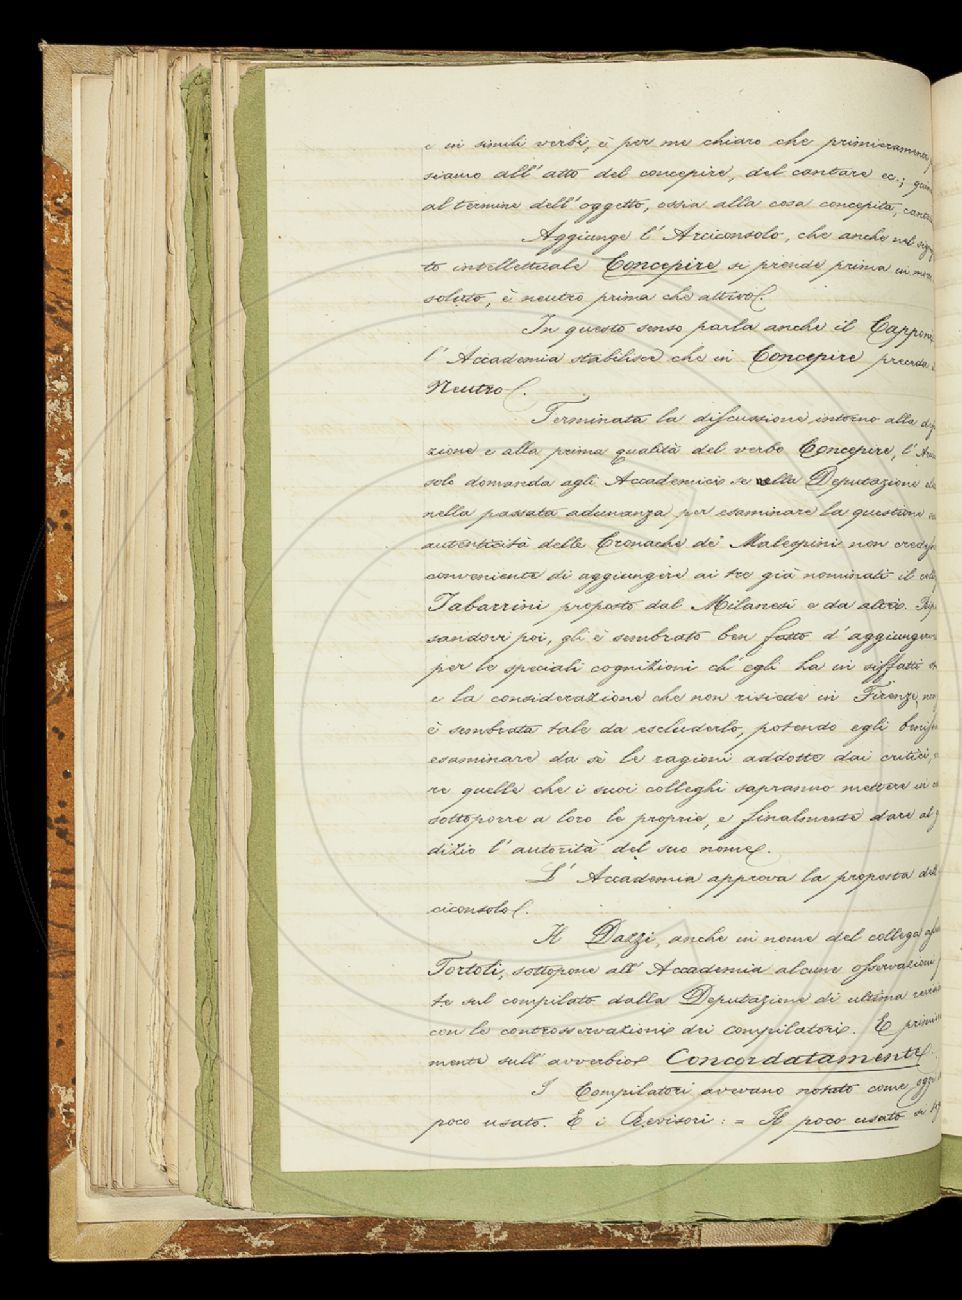 e in simili verbi, è per me chiaro che primieramente
siamo all' atto del concepire, del cantare ec.;
al termine dell' oggetto, ossia alla cosa concepita,
Aggiunge l' Arciconsolo, che anche nel
to intellettuale Concepire si prende prima in
soluto, è neutro prima che attivo.
In questo senso parla anche il Capponi
l' Accademia stabilisce che in Concepire preceda
Neutro.
Terminata la discussione intorno alla
zione e alla prima qualità del verbo Concepire, l'
solo domanda agli Accademici se nella Deputazione
nella passata adunanza, per esaminare la questione
autenticità delle Cronache de' Malespini non
conveniente di aggiungere ai tre già nominati il
Tabarrini proposto dal Milanesi e da altri.
sandovi poi, gli è sembrato ben fatto d' aggiungere
per le speciali cognizioni ch' egli ha in siffatti
e la considerazione che non risiede in Firenze,
è sembrata tale da escluderlo, potendo egli
esaminare da sè le ragioni addotte dai critici,
re quelle che i suoi colleghi sapranno mettere in
sottoporre a loro le proprie, e finalmente dare al
dizio l' autorità del suo nome.
L' Accademia approva la proposta dell'
ciconsolo.
Il Dazzi, anche in nome del collega
Tortoli, sottopone all' Accademia alcune osservazioni
te sul compilato dalla Deputazione di ultima
con le controsservazioni dei compilatori. E
mente sull' avverbio Concordatamente.
I Compilatori avevano notato come
poco usato. E i Revisori: = Il poco usato si